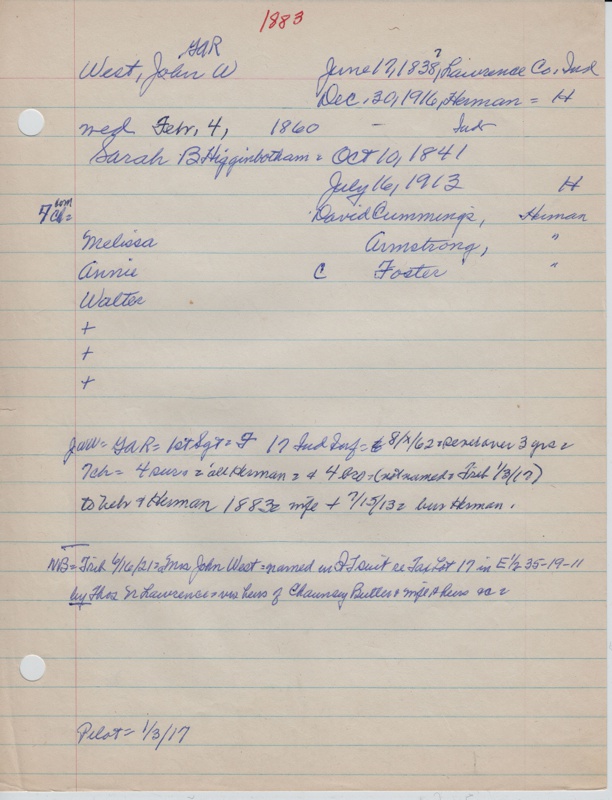 1883
GAR
West, John W June 17, 1838?, Lawrence Co, Ind
Dec. 30, 1916, Herman = H
med Febr. 4, 1860 - Ind
Sarah B Higginbotham = Oct 10, 1841
July 16, 1913 H
7 ch = David Cummings, Herman
Melissa Armstrong, "
Annie C Foster "
Walter
+
+
+
JWW = GAR = 1st Sgt = F 17 Ind Inf = 8/ /62 = served over 3 yrs =
7 ch = 4 surv = all Herman = + 4 bro = (not named = Trib 1/3/17)
to Nebr + Herman 1883 = wife + 7/15/13 = bur Herman.
NB = Trib 6/16/21 = Mrs John West = named in QT suit re Tax Lot 17 in E 1/2 35-19-11
by Thos W Lawrence = vs heirs of Chauncy Butler + wife + heirs &c =
Pilot = 1/3/17